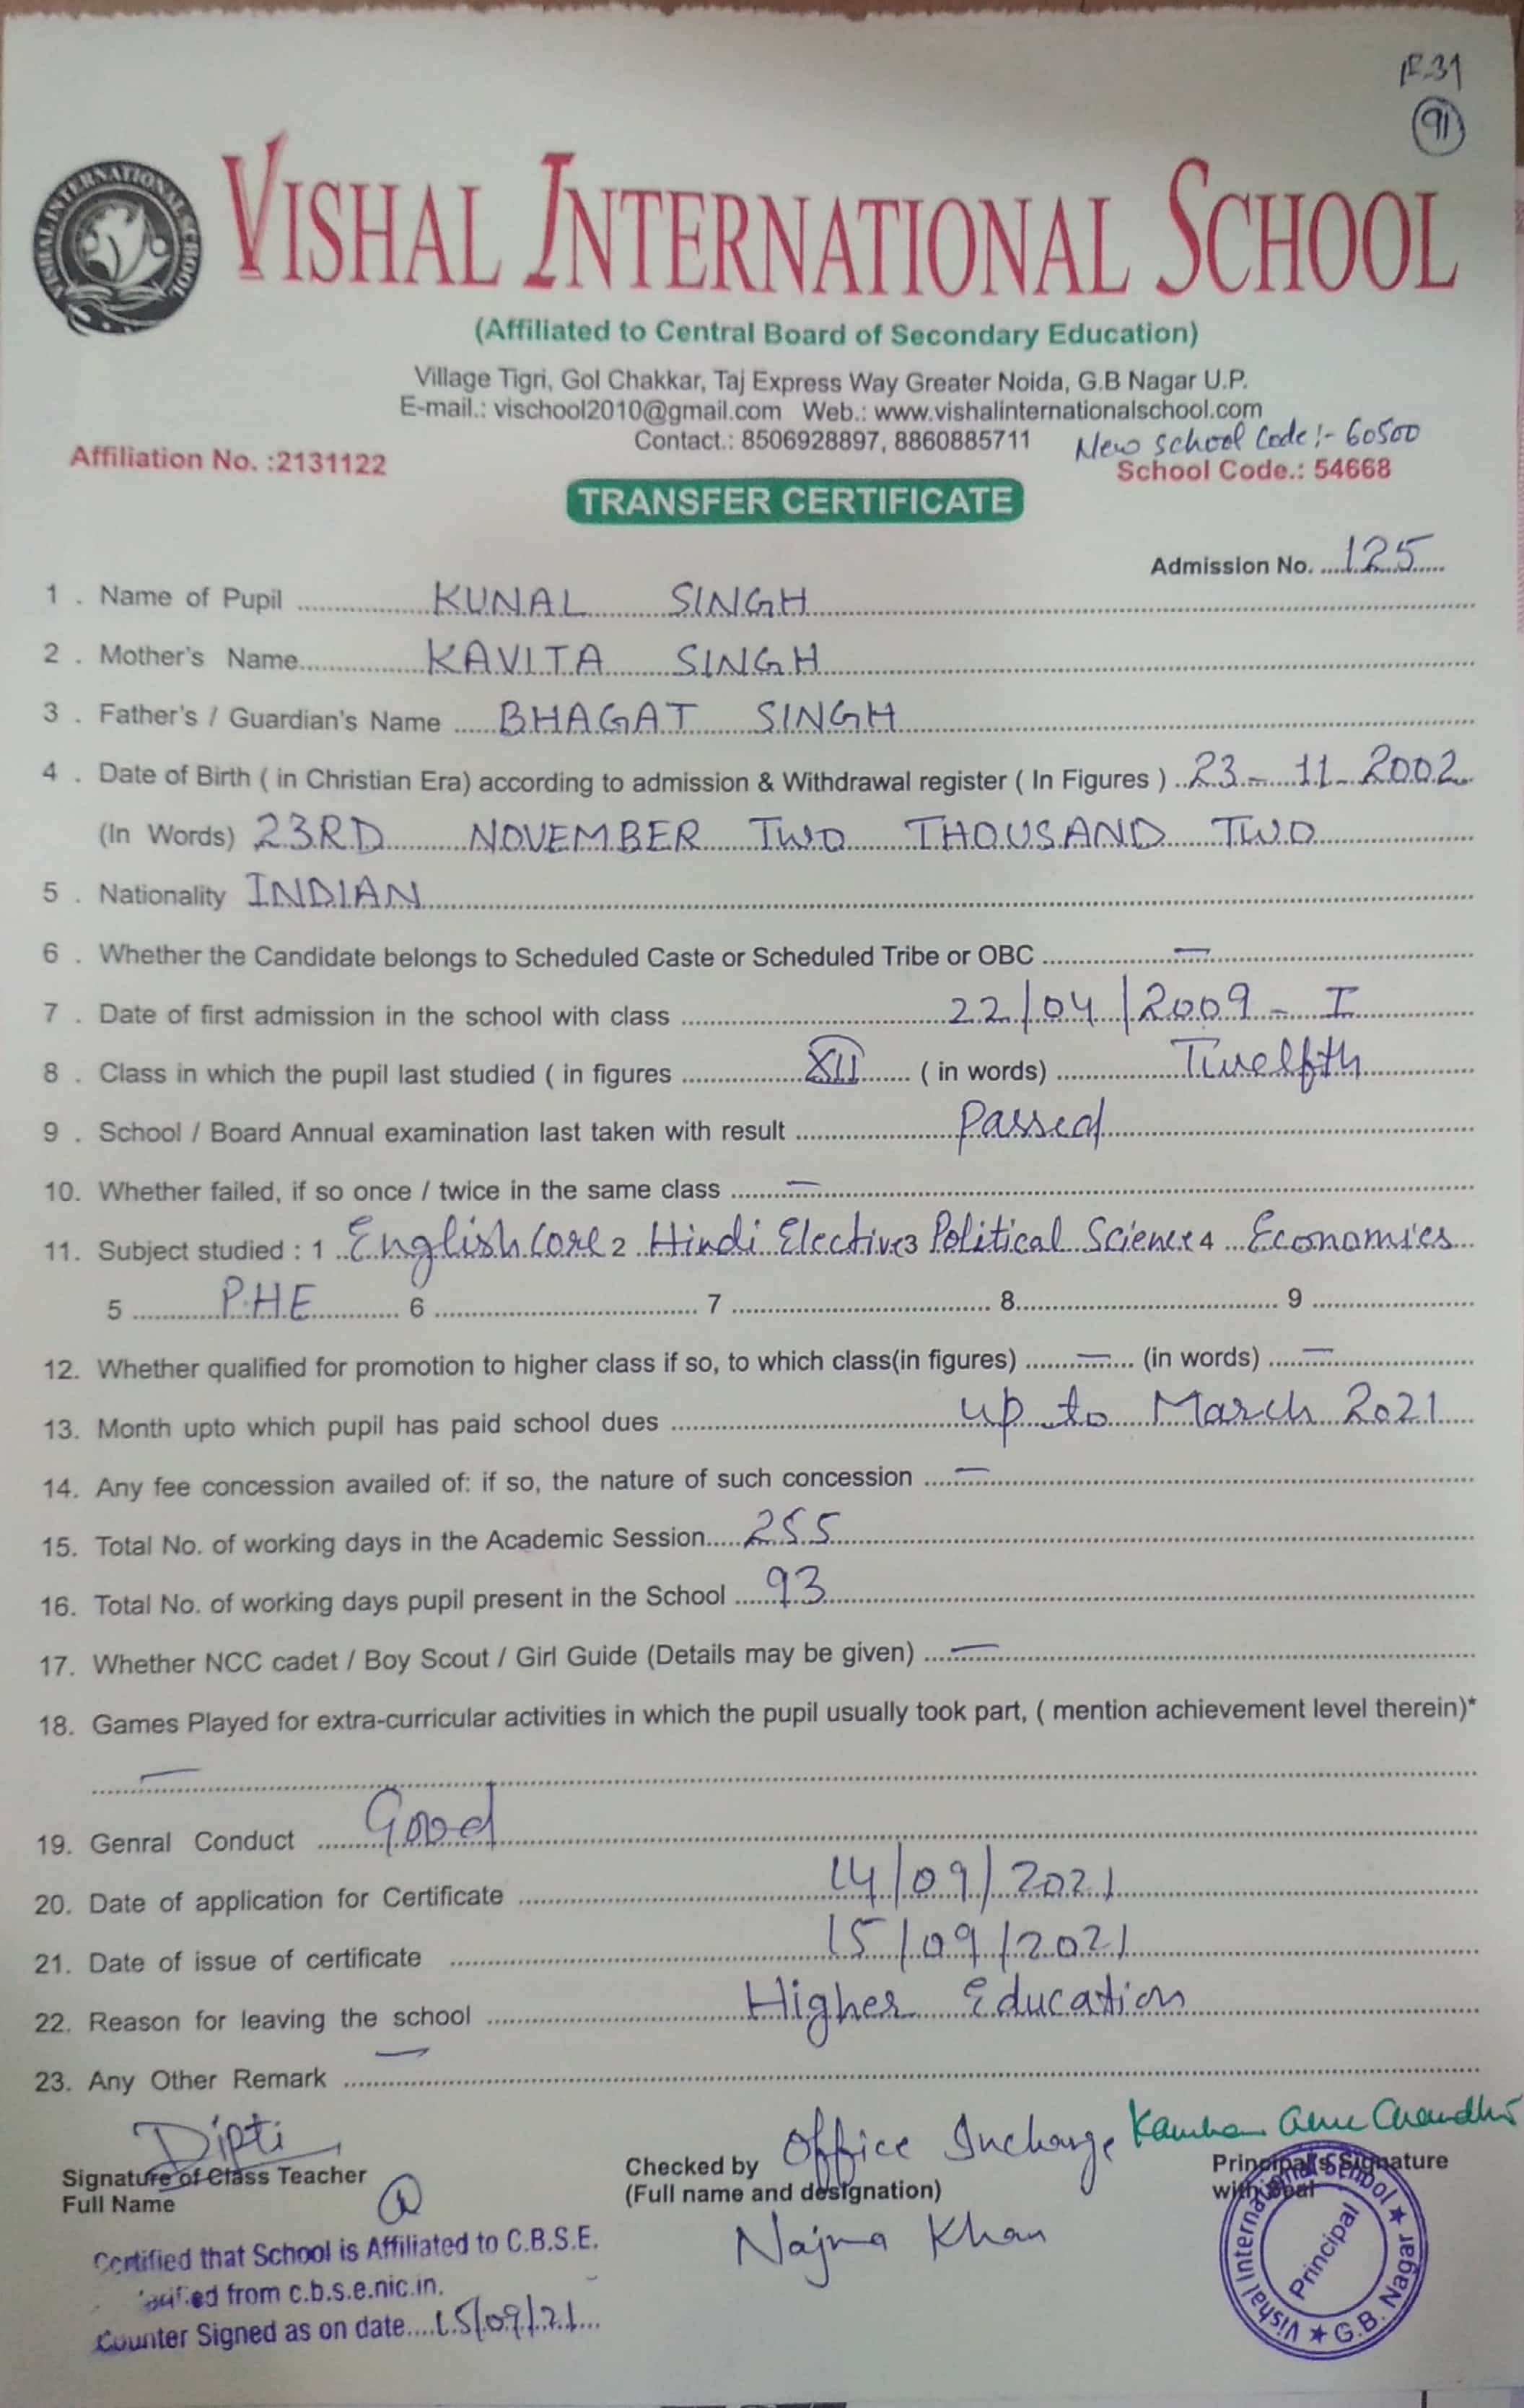 F-31
91
VISHAL INTERNATIONAL SCHOOL
VISHAL INTERNATIONAL SCHOOL
(Affiliated to Central Board of Secondary Education)
Village Tigri, Gol Chakkar, Taj Express Way Greater Noida, G.B Nagar U.P.
E-mail.: vischool2010@gmail.com Web.: www.vishalinternationalschool.com
Contact.: 8506928897, 8860885711 New School Code:- 60500
Affiliation No. :2131122 School Code.: 54668
TRANSFER CERTIFICATE
Admission No. 125
1 . Name of Pupil KUNAL SINGH
2 . Mother's Name KAVITA SINGH
3 . Father's / Guardian's Name BHAGAT SINGH
4 . Date of Birth ( in Christian Era) according to admission & Withdrawal register ( In Figures ) 23 - 11 - 2002
(In Words) 23RD NOVEMBER TWO THOUSAND TWO
5 . Nationality INDIAN
6 . Whether the Candidate belongs to Scheduled Caste or Scheduled Tribe or OBC —
7 . Date of first admission in the school with class 22/04/2009 - I
8 . Class in which the pupil last studied ( in figures XII ( in words) Twelfth
9 . School / Board Annual examination last taken with result Passed
10. Whether failed, if so once / twice in the same class —
11. Subject studied : 1 English Core 2 Hindi Elective 3 Political Science 4 Economics
5 P.H.E 6 7 8 9
12. Whether qualified for promotion to higher class if so, to which class(in figures) — (in words) —
13. Month upto which pupil has paid school dues up to March 2021
14. Any fee concession availed of: if so, the nature of such concession —
15. Total No. of working days in the Academic Session 255
16. Total No. of working days pupil present in the School 93
17. Whether NCC cadet / Boy Scout / Girl Guide (Details may be given) —
18. Games Played for extra-curricular activities in which the pupil usually took part, ( mention achievement level therein)*
—
19. Genral Conduct Good
20. Date of application for Certificate 14/09/2021
21. Date of issue of certificate 15/09/2021
22. Reason for leaving the school Higher Education
23. Any Other Remark —
Dipti
Signature of Class Teacher
Full Name
Checked by Office Incharge
(Full name and designation)
Najma Khan
Principal's Signature
with Seal
Vishal International School ★ G.B. Nagar ★
Principal
Certified that School is Affiliated to C.B.S.E.
Verified from c.b.s.e.nic.in.
Counter Signed as on date 15/09/21